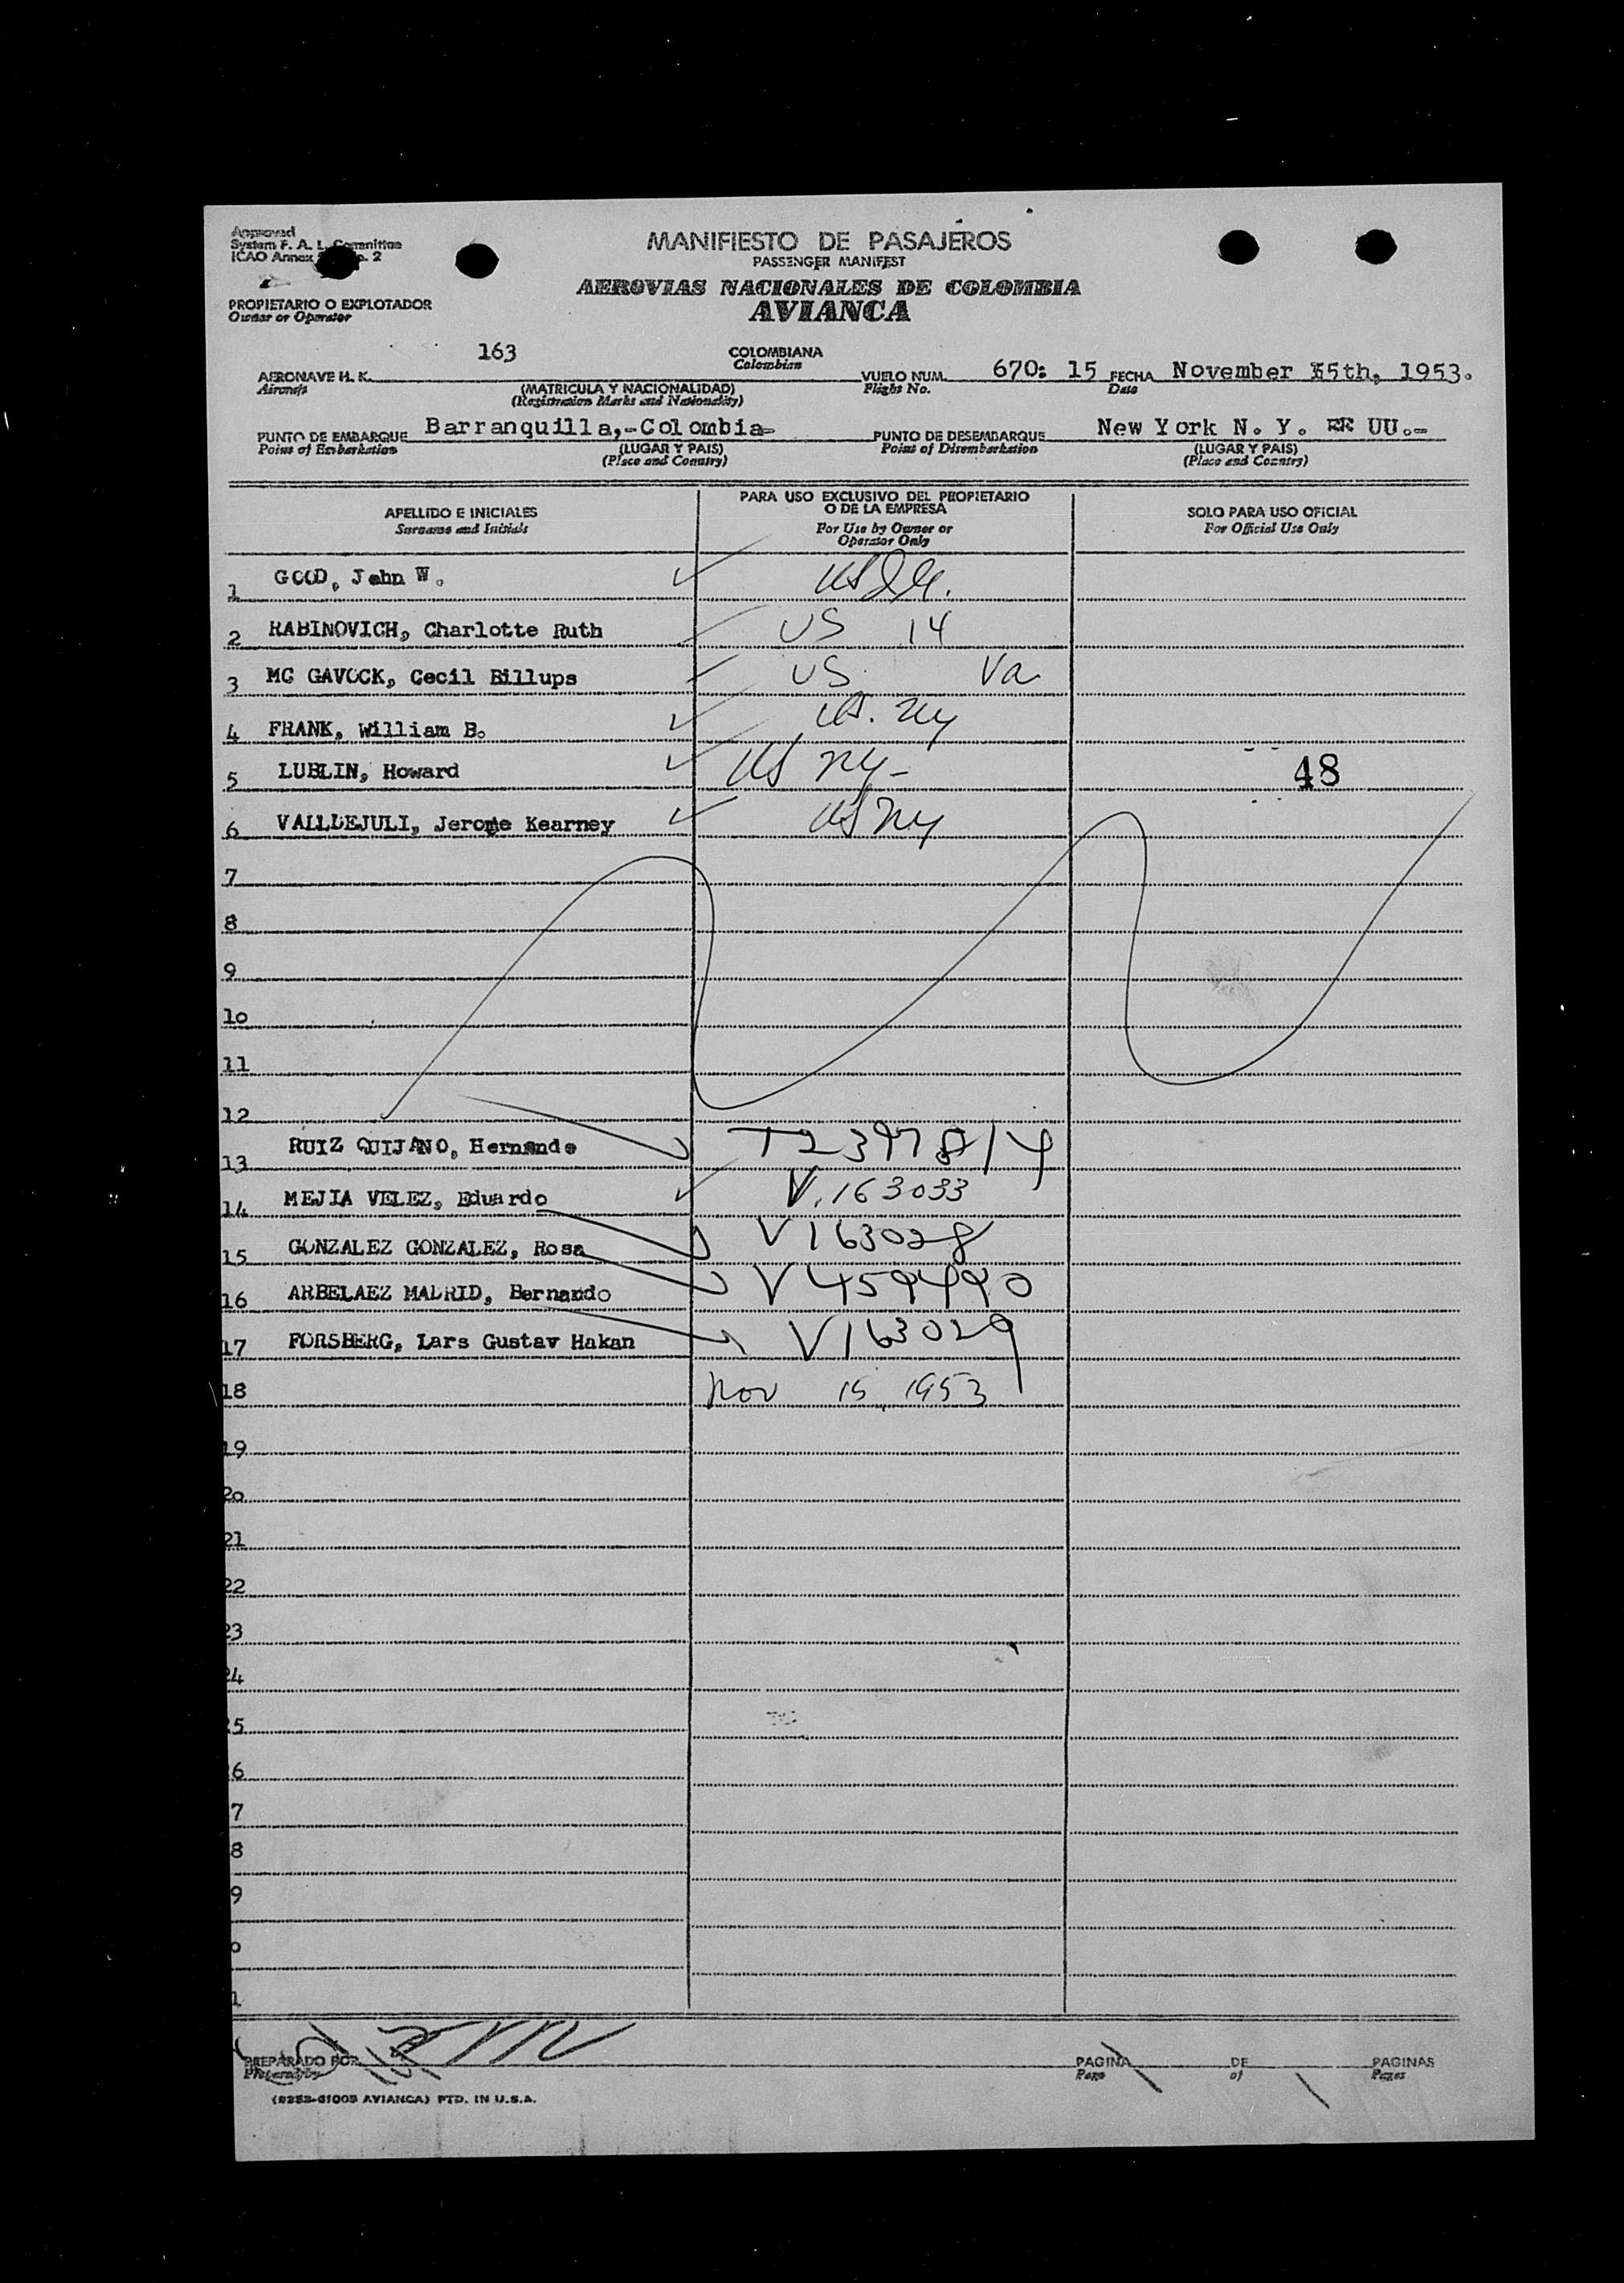 Approved
System F. A. L. Committee
ICAO Annex
PROPIETARIO O EXPLOTADOR
Owner or Operator
MANIFIESTO DE PASAJEROS
PASSENGER MANIFEST
AEROVIAS NACIONALES DE COLOMBIA
AVIANCA
AERONAVE H. K. 163 COLOMBIANA VUELO NUM. 670: 15 FECHA November 15th, 1953.
Aircraft Colombian Flight No. Date
(MATRICULA Y NACIONALIDAD)
(Registration Marks and Nationality)
PUNTO DE EMBARQUE Barranquilla,-Colombia- PUNTO DE DESEMBARQUE New York N. Y. EE UU.-
Point of Embarkation Point of Disembarkation
(LUGAR Y PAIS) (LUGAR Y PAIS)
(Place and Country) (Place and Country)
APELLIDO E INICIALES
Surname and Initials
PARA USO EXCLUSIVO DEL PROPIETARIO
O DE LA EMPRESA
For Use by Owner or
Operator Only
SOLO PARA USO OFICIAL
For Official Use Only
1 GOOD, John W. US
2 RABINOVICH, Charlotte Ruth US 14
3 MC GAVOCK, Cecil Billups US Va
4 FRANK, William B. US. NY
5 LUBLIN, Howard US NY- 48
6 VALLDEJULI, Jerome Kearney US NY
7
8
9
10
11
12
13 RUIZ QUIJANO, Hernando
14 MEJIA VELEZ, Eduardo V.163033
15 GONZALEZ GONZALEZ, Rosa V163028
16 ARBELAEZ MADRID, Bernando V459490
17 FORSBERG, Lars Gustav Hakan V163029
18 Nov 15, 1953
19
20
21
22
23
24
5
6
7
8
9
0
1
PREPARADO POR PAGINA DE PAGINAS
Prepared by Page of Pages
(0253-01005 AVIANCA) PTD. IN U.S.A.